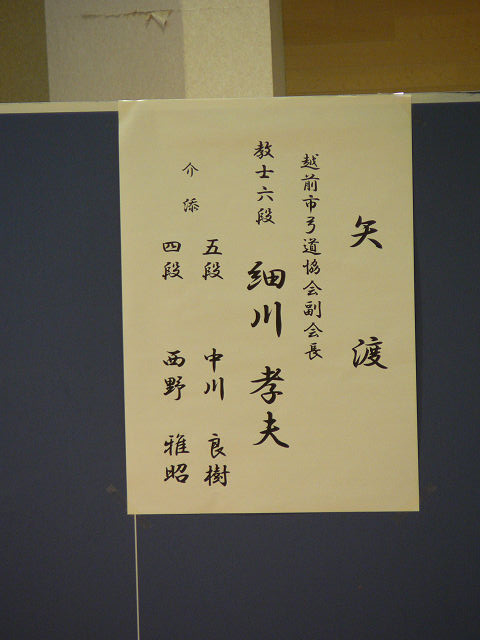 矢渡
越前市弓道協会副会長
教士六段 細川 孝夫
介添
五段 中川 良樹
四段 西野 雅昭